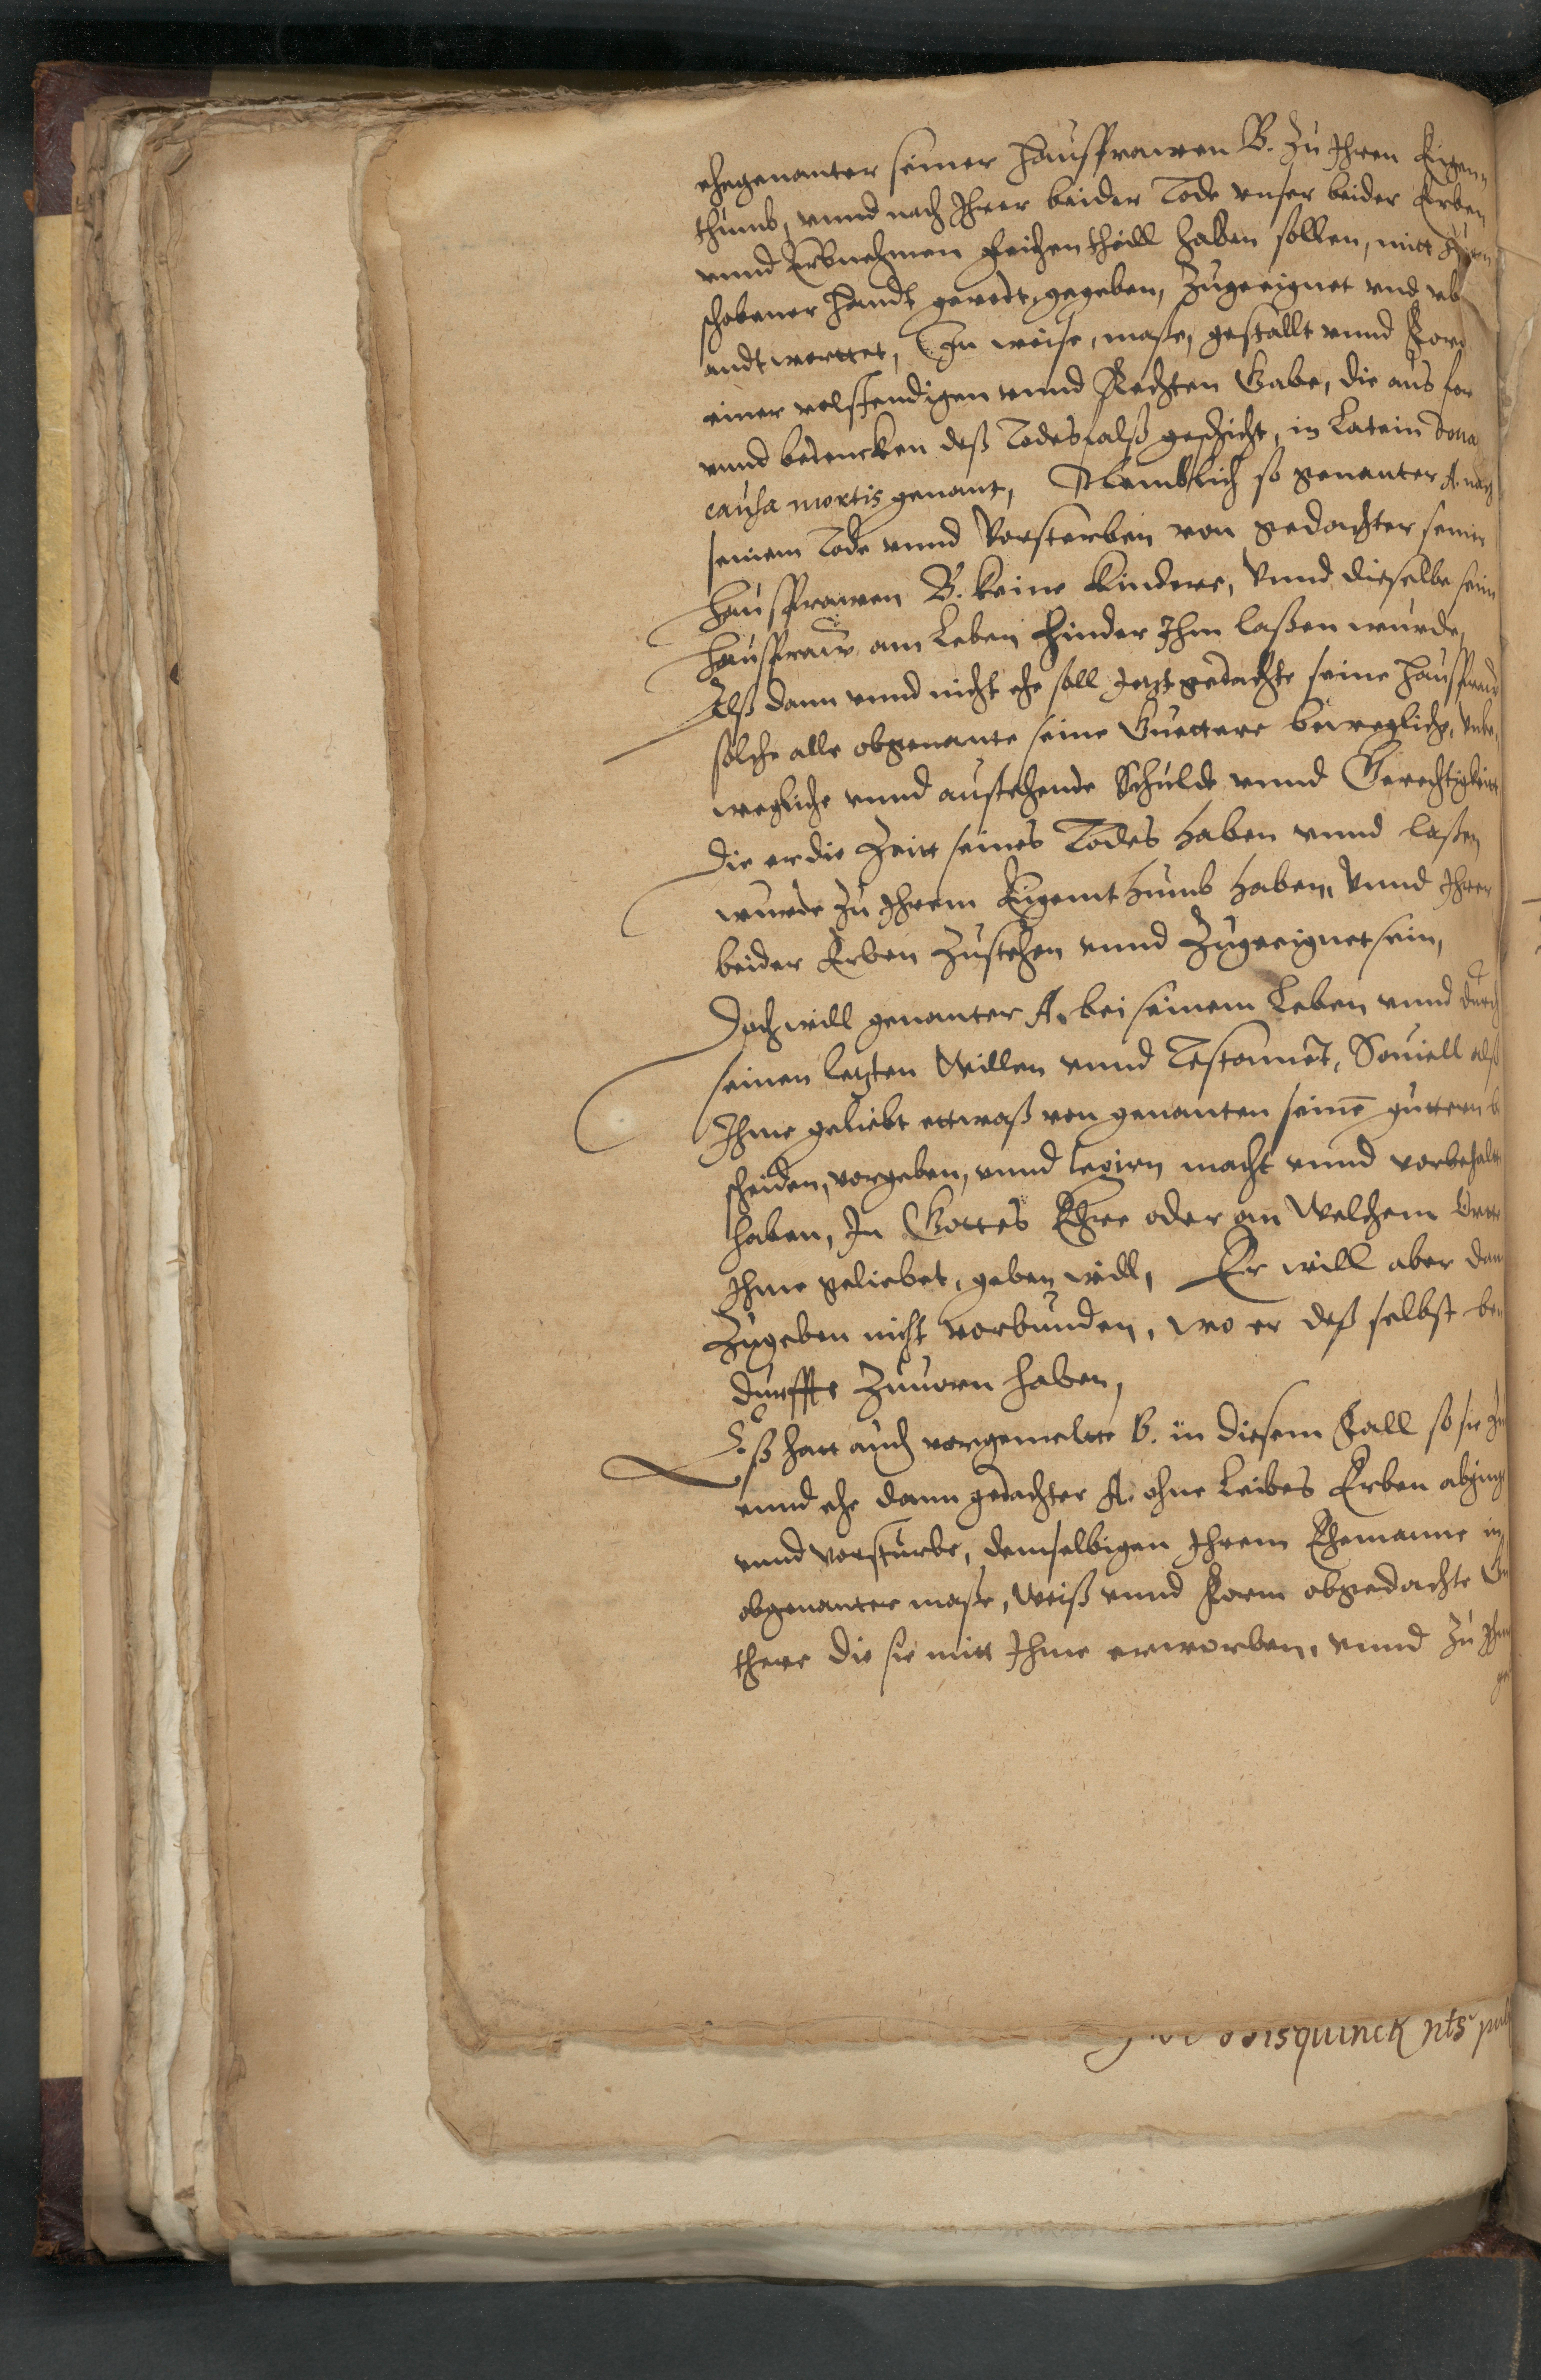 ehegenanter seiner Hausfrawen B. zu Ihren Eigen„
thumb, vnnd nach Ihrer beider Tode vnser beider Erben
vnnd Erbnehmen Leihenthaill haben sollen, mitt
schobener Handt geredt, gegeben, Zugeeignet vnd vb
andtworttet, In weise, maße, gestallt vnnd Form
einer volstendigen vnnd Rechten Gabe, die aus for
vnnd bedencken deß Todesfalß geschicht, in Latein dona
causa mortis genant, Nemblich so genanter A. nach
seinem Tode vnnd Vorsterben von gedachter seiner
Hausfrawen B. keine Kindere, Vnnd dieselbe sein
Hausfraw am Leben hinder Ihm laßen wurde,
Alß dann vnnd nicht ehe soll Jetztgedachte seine Hausfraw
solche alle obgenante seine Guettere bewegliche, Vnbe„
wegliche vnnd austehende Schulde vnnd Gerechtigkeitt
Die er die Zeitt seines Todes haben vnnd laßen
wurde zu Ihrem Eigenthumb haben, Vnnd Ihrer
beider Erben Zustehen vnnd Zugeeignet sein,
Doch will genanter A. bei seinem Leben vnnd durch
seinen letzten Willen vnnd Testament, Souiell alß
Ihme geliebt ettwaß von genanten seinē guttern b
scheiden, vorgeben, vnnd legirn macht vnnd vorbehalt
haben, In Gottes Ehre oder an Welchem Ortte
Ihme geliebet, geben will, Er will aber dan
Zugeben nicht vorbunden, wo er deß selbst be„
durffte Zuuorn haben,
Eß hatt auch vorgemelte B. in diesem Fall so sie Zu
vnnd ehe dann gedachter A. ohne Leibes Erben abging
vnnd vorsturbe, demselbigen Ihrem Ehemanne in
obgenanter maße, Weiß vnnd Form obgedachte Gu
there die sie mitt Ihme erworben, vnnd Zu Ihm
ge
isquinck nts pub